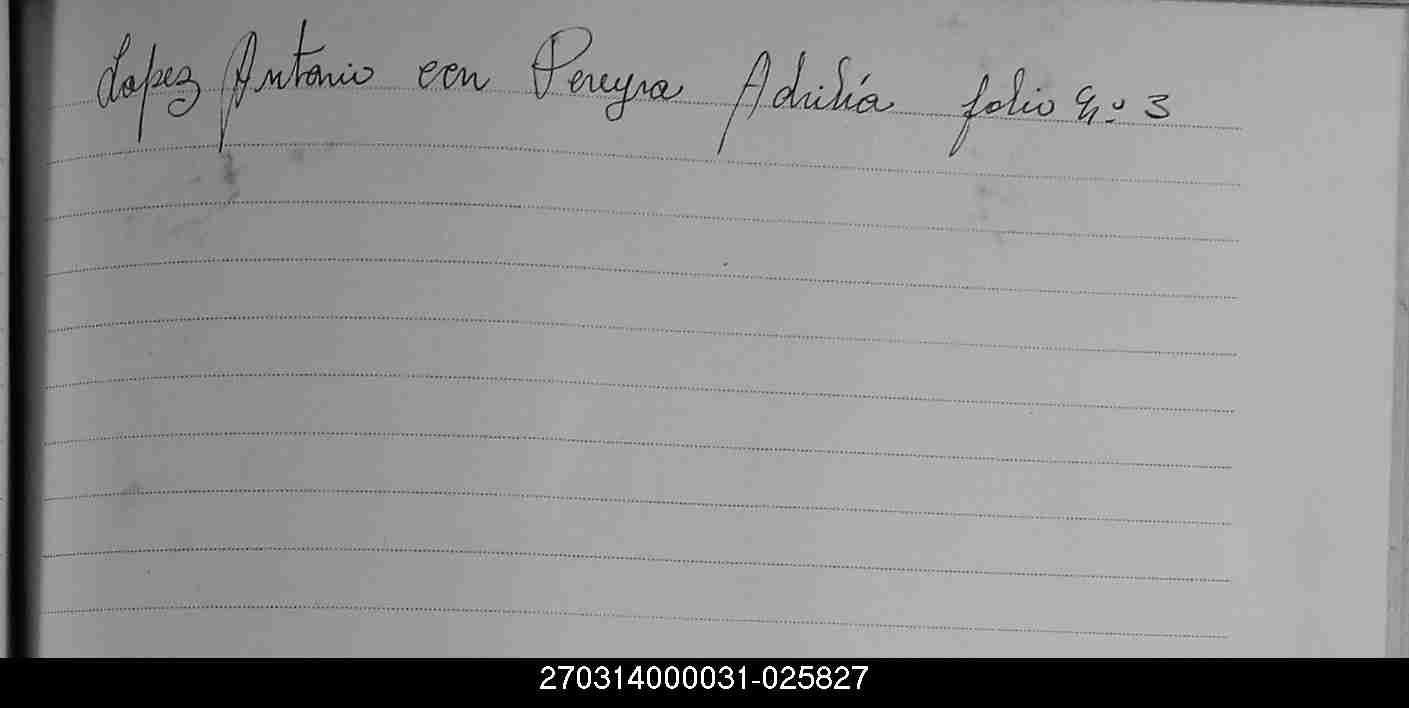 Lopez Antonio con Pereyra Adrilía folio n.º 3
270314000031-025827